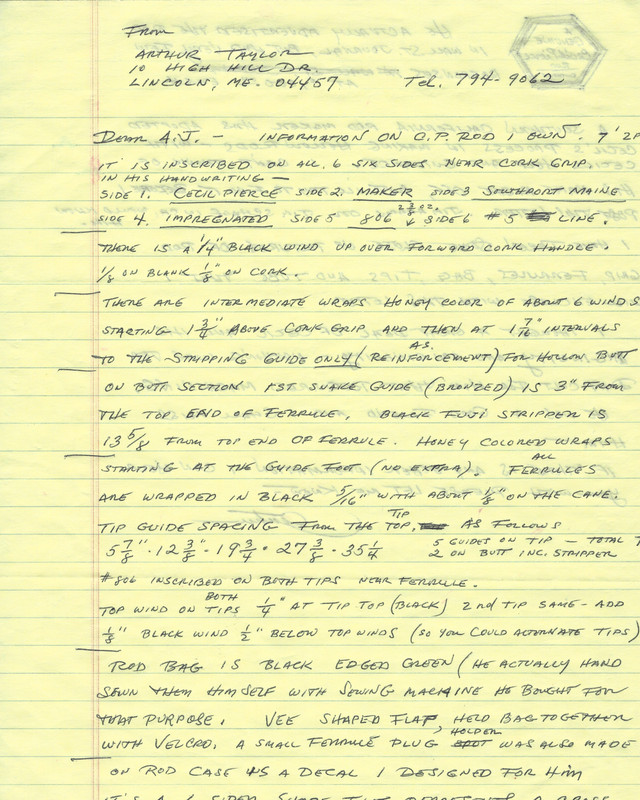 From
ARTHUR TAYLOR
10 HIGH HILL DR.
LINCOLN, ME. 04457 TEL. 794-9062
DEAR A.J. — INFORMATION ON C.P. ROD I OWN. 7' 2P
IT IS INSCRIBED ON ALL 6 SIX SIDES NEAR CORK GRIP.
IN HIS HANDWRITING —
SIDE 1. CECIL PIERCE SIDE 2. MAKER SIDE 3 SOUTHPORT MAINE
SIDE 4. IMPREGNATED SIDE 5 806 2 3/8 oz. SIDE 6 #5 LINE.
THERE IS A 1/4" BLACK WIND UP OVER FORWARD CORK HANDLE.
1/8 ON BLANK 1/8" ON CORK.
THERE ARE INTERMEDIATE WRAPS HONEY COLOR OF ABOUT 6 WINDS
STARTING 1 3/4" ABOVE CORK GRIP AND THEN AT 1 7/16" INTERVALS
TO THE STRIPPING GUIDE ONLY (AS REINFORCEMENT) FOR HOLLOW BUTT
ON BUTT SECTION 1ST SNAKE GUIDE (BRONZED) IS 3" FROM
THE TOP END OF FERRULE, BLACK FUJI STRIPPER IS
13 5/8 FROM TOP END OF FERRULE. HONEY COLORED WRAPS
STARTING AT THE GUIDE FOOT (NO EXTRA). ALL FERRULES
ARE WRAPPED IN BLACK 5/16" WITH ABOUT 1/8" ON THE CANE.
TIP GUIDE SPACING FROM THE TIP TOP, AS FOLLOWS
5 7/8" · 12 3/8" - 19 3/4 · 27 3/8 · 35 1/4 5 GUIDES ON TIP — TOTAL 7
2 ON BUTT INC. STRIPPER
#806 INSCRIBED ON BOTH TIPS NEAR FERRULE.
TOP WIND ON BOTH TIPS 1/4" AT TIP TOP (BLACK) 2nd TIP SAME - ADD
1/8" BLACK WIND 1/2" BELOW TOP WINDS (SO YOU COULD ALTERNATE TIPS)
ROD BAG IS BLACK EDGED GREEN (HE ACTUALLY HAND
SEWN THEM HIMSELF WITH SEWING MACHINE HE BOUGHT FOR
THAT PURPOSE. VEE SHAPED FLAP, HELD BAG TOGETHER
WITH VELCRO. A SMALL FERRULE PLUG HOLDER WAS ALSO MADE
ON ROD CASE IS A DECAL I DESIGNED FOR HIM
IT'S A 6 SIDED SHAPE THAT REPRESENTS A CROSS